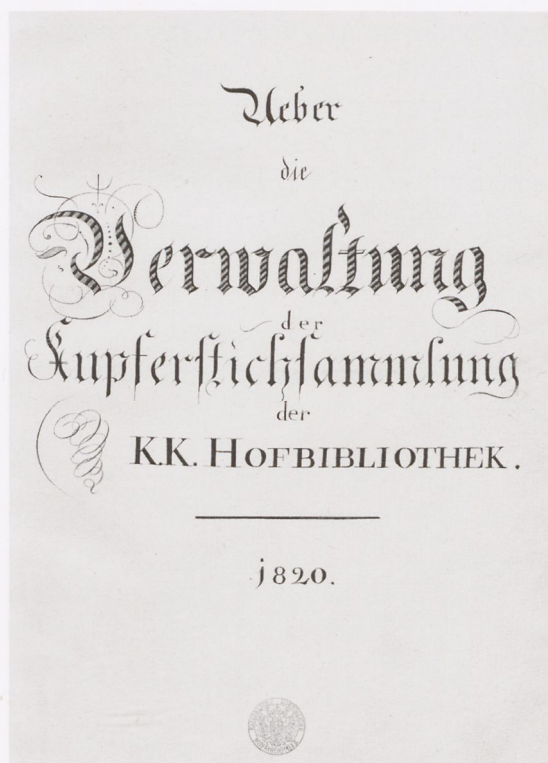 Ueber
die
Verwaltung
der
Kupferstichsammlung
der
K.K. HOFBIBLIOTHEK.
1820.